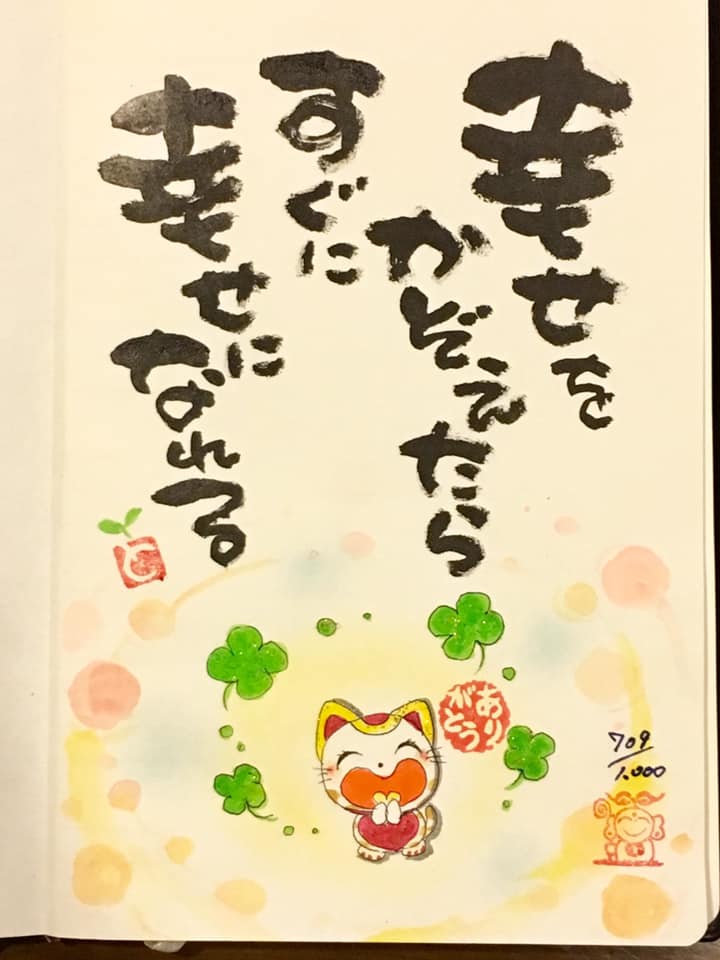 幸せを
かぞえたら
すぐに
幸せになれる
と
ありがとう
709/1,000